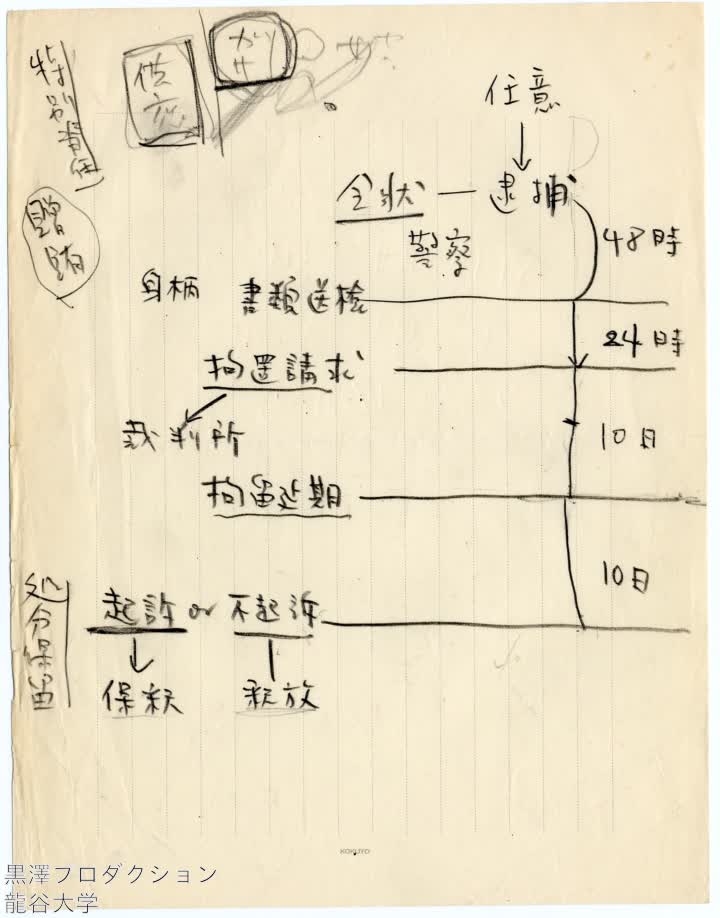 特別背任
贈賄
供応
ガサ
任意
令状 ― 逮捕
警察
48時
身柄 書類送検
24時
拘置請求
裁判所
10日
拘留延期
10日
処分保留
起訴 or 不起訴
保釈 釈放
KOKUYO
黒澤プロダクション
龍谷大学